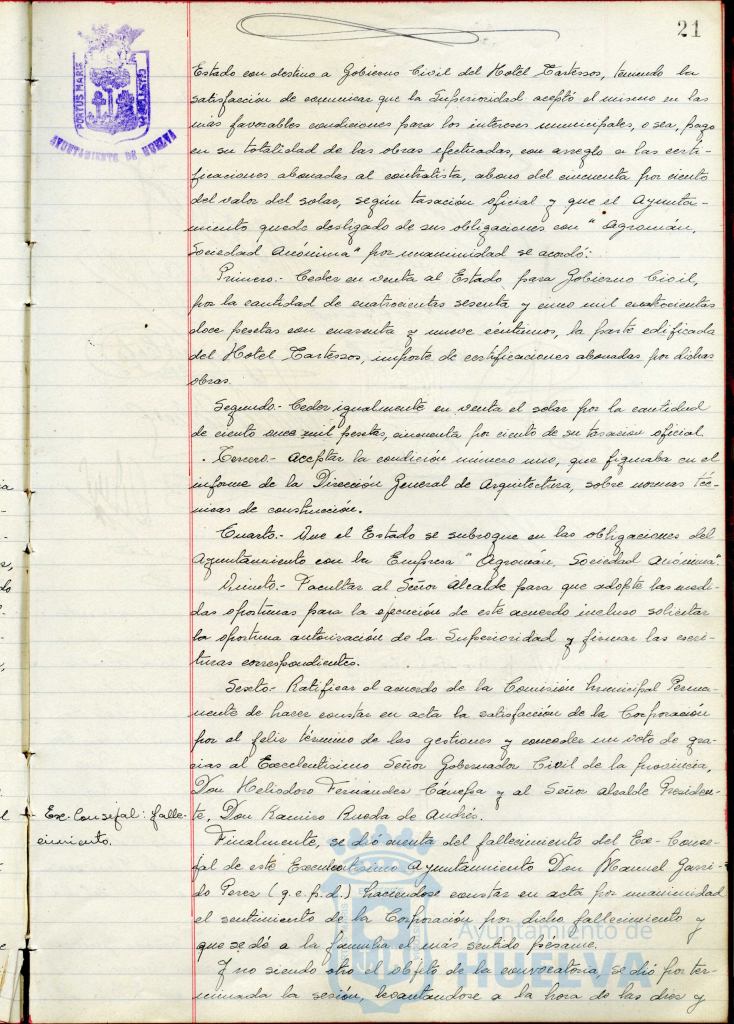 21
PORTUS MARIS
AYUNTAMIENTO DE HUELVA
Estado con destino a Gobierno Civil del Hotel Tartessos, teniendo la
satisfacción de comunicar que la Superioridad aceptó el mismo en las
mas favorables condiciones para los intereses municipales, o sea, pago
en su totalidad de las obras efectuadas, con arreglo a las certi-
ficaciones abonadas al contratista, abono del cincuenta por ciento
del valor del solar, según tasación oficial y que el Ayunta-
miento quede desligado de sus obligaciones con "Agromán,
Sociedad Anónima" por unanimidad se acordó:
Primero.- Ceder en venta al Estado para Gobierno Civil,
por la cantidad de cuatrocientas sesenta y cinco mil cuatrocientas
doce pesetas con cuarenta y nueve céntimos, la parte edificada
del Hotel Tartessos, importe de certificaciones abonadas por dichas
obras.
Segundo.- Ceder igualmente en venta el solar por la cantidad
de ciento once mil pesetas, cincuenta por ciento de su tasacion oficial.
Tercero.- Aceptar la condición número uno, que figuraba en el
informe de la Dirección General de Arquitectura, sobre normas téc-
nicas de construcción.
Cuarto.- Que el Estado se subrogue en las obligaciones del
Ayuntamiento con la Empresa "Agromán, Sociedad Anónima".
Quinto.- Facultar al Señor Alcalde para que adopte las medi-
das oportunas para la ejecución de este acuerdo incluso solicitar
la oportuna autorización de la Superioridad y firmar las escri-
turas correspondientes.
Sexto.- Ratificar el acuerdo de la Comisión Municipal Perma-
nente de hacer constar en acta la satisfacción de la Corporación
por el feliz término de las gestiones y conceder un voto de gra-
cias al Excelentisimo Señor Gobernador Civil de la provincia,
Don Heliodoro Fernández Cánepa y al Señor Alcalde Presiden-
te, Don Ramiro Rueda de Andrés.
Ex-Consejal: falle-
cimiento.
Finalmente, se dió cuenta del fallecimiento del Ex-Conse-
jal de este Excelentisimo Ayuntamiento Don Manuel Garri-
do Perez (q.e.p.d.) haciendose constar en acta por unanimidad
el sentimiento de la Corporación por dicho fallecimiento y
que se dé a la familia el más sentido pésame.
Y no siendo otro el objeto de la convocatoria, se dió por ter-
minada la sesión, levantandose a la hora de las diez y
Ayuntamiento de
HUELVA